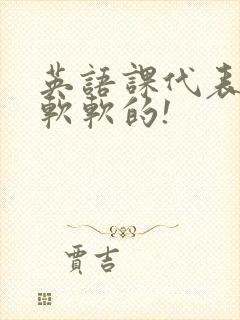 英語課代表
軟軟的!
賈吉